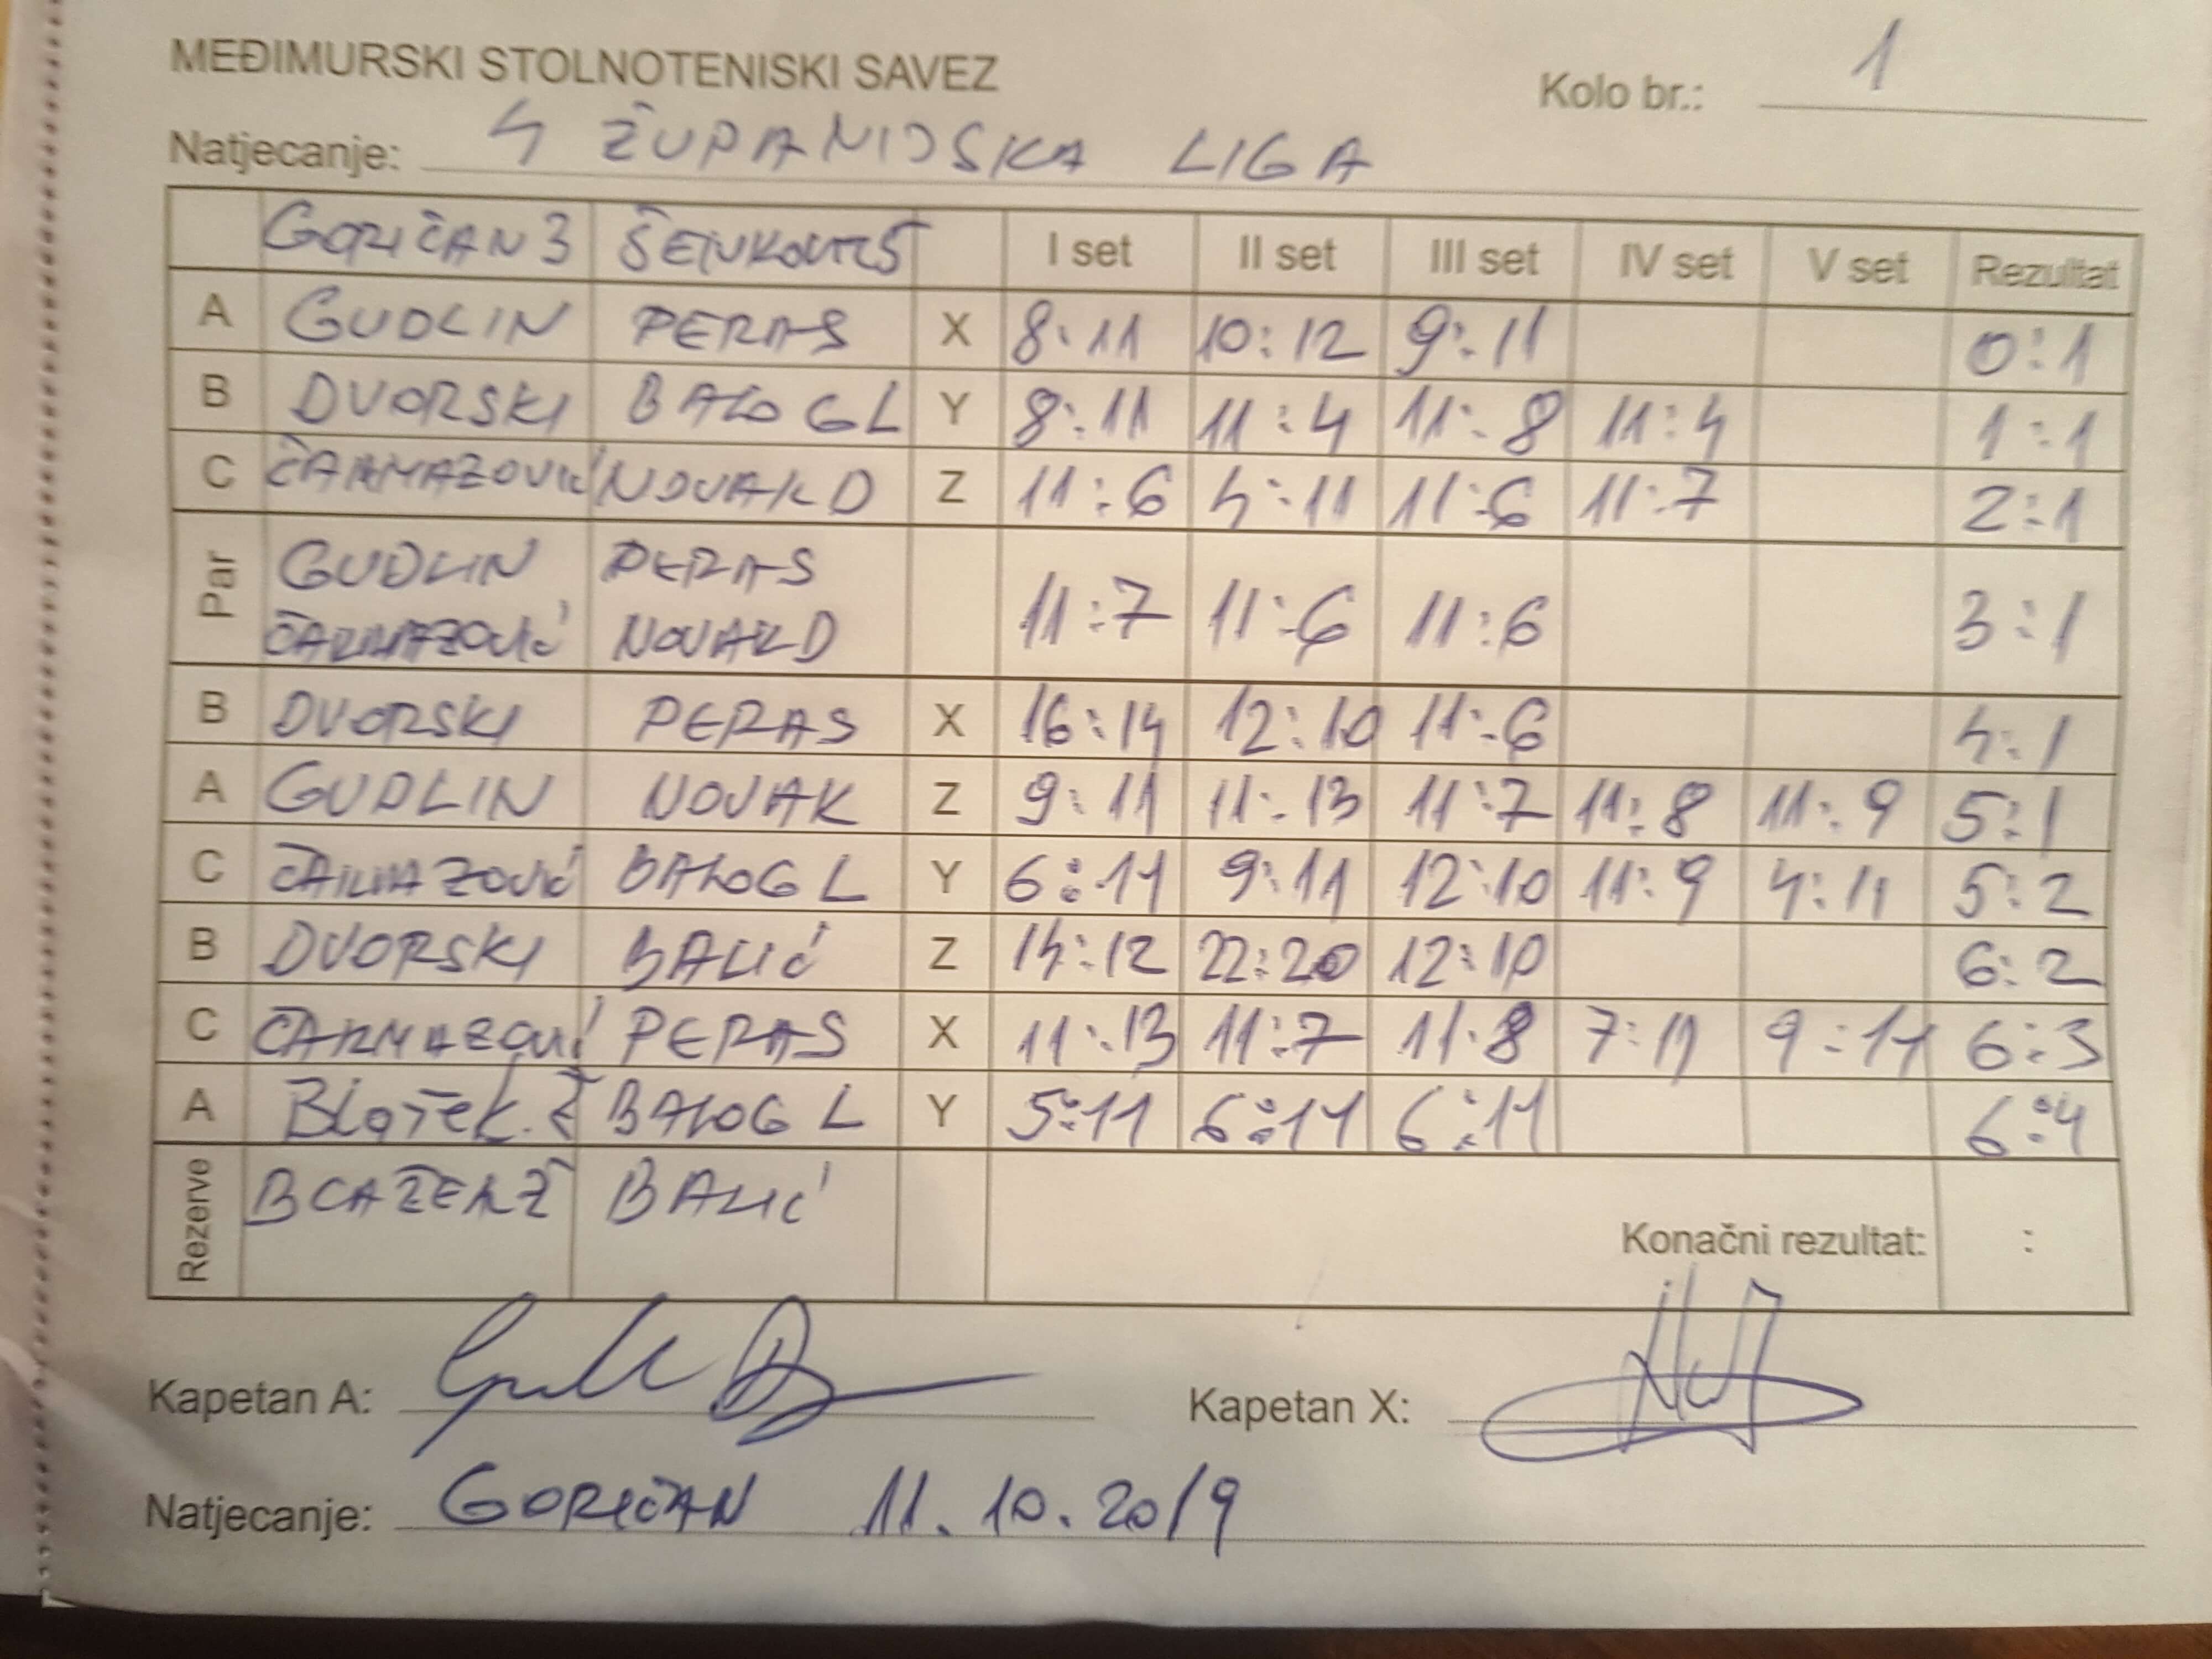 MEĐIMURSKI STOLNOTENISKI SAVEZ
Kolo br.: 1
Natjecanje: 4 ŽUPANIJSKA LIGA
GORIČAN 3 I set II set III set IV set V set Rezultat
A GUDLIN PERAS X 8:11 10:12 9:11 0:1
B DVORSKI BALOG L Y 8:11 11:4 11:8 11:4 1:1
C ČARMAZOVIĆ NOVAK D Z 11:6 4:11 11:6 11:7 2:1
Par GUDLIN PERAS
ČARMAZOVIĆ NOVAK D 11:7 11:6 11:6 3:1
B DVORSKI PERAS X 16:14 12:10 11:6 4:1
A GUDLIN NOVAK Z 9:11 11:13 11:7 11:8 11:9 5:1
C ČARMAZOVIĆ BALOG L Y 6:11 9:11 12:10 11:9 4:11 5:2
B DVORSKI BALIĆ Z 14:12 22:20 12:10 6:2
C ČARMAZOVIĆ PERAS X 11:13 11:7 11:8 7:11 9:11 6:3
A BALOG L Y 5:11 6:11 6:11 6:4
Rezerve BALIĆ
Konačni rezultat: :
Kapetan A: Kapetan X:
Natjecanje: GORIČAN 11.10.2019